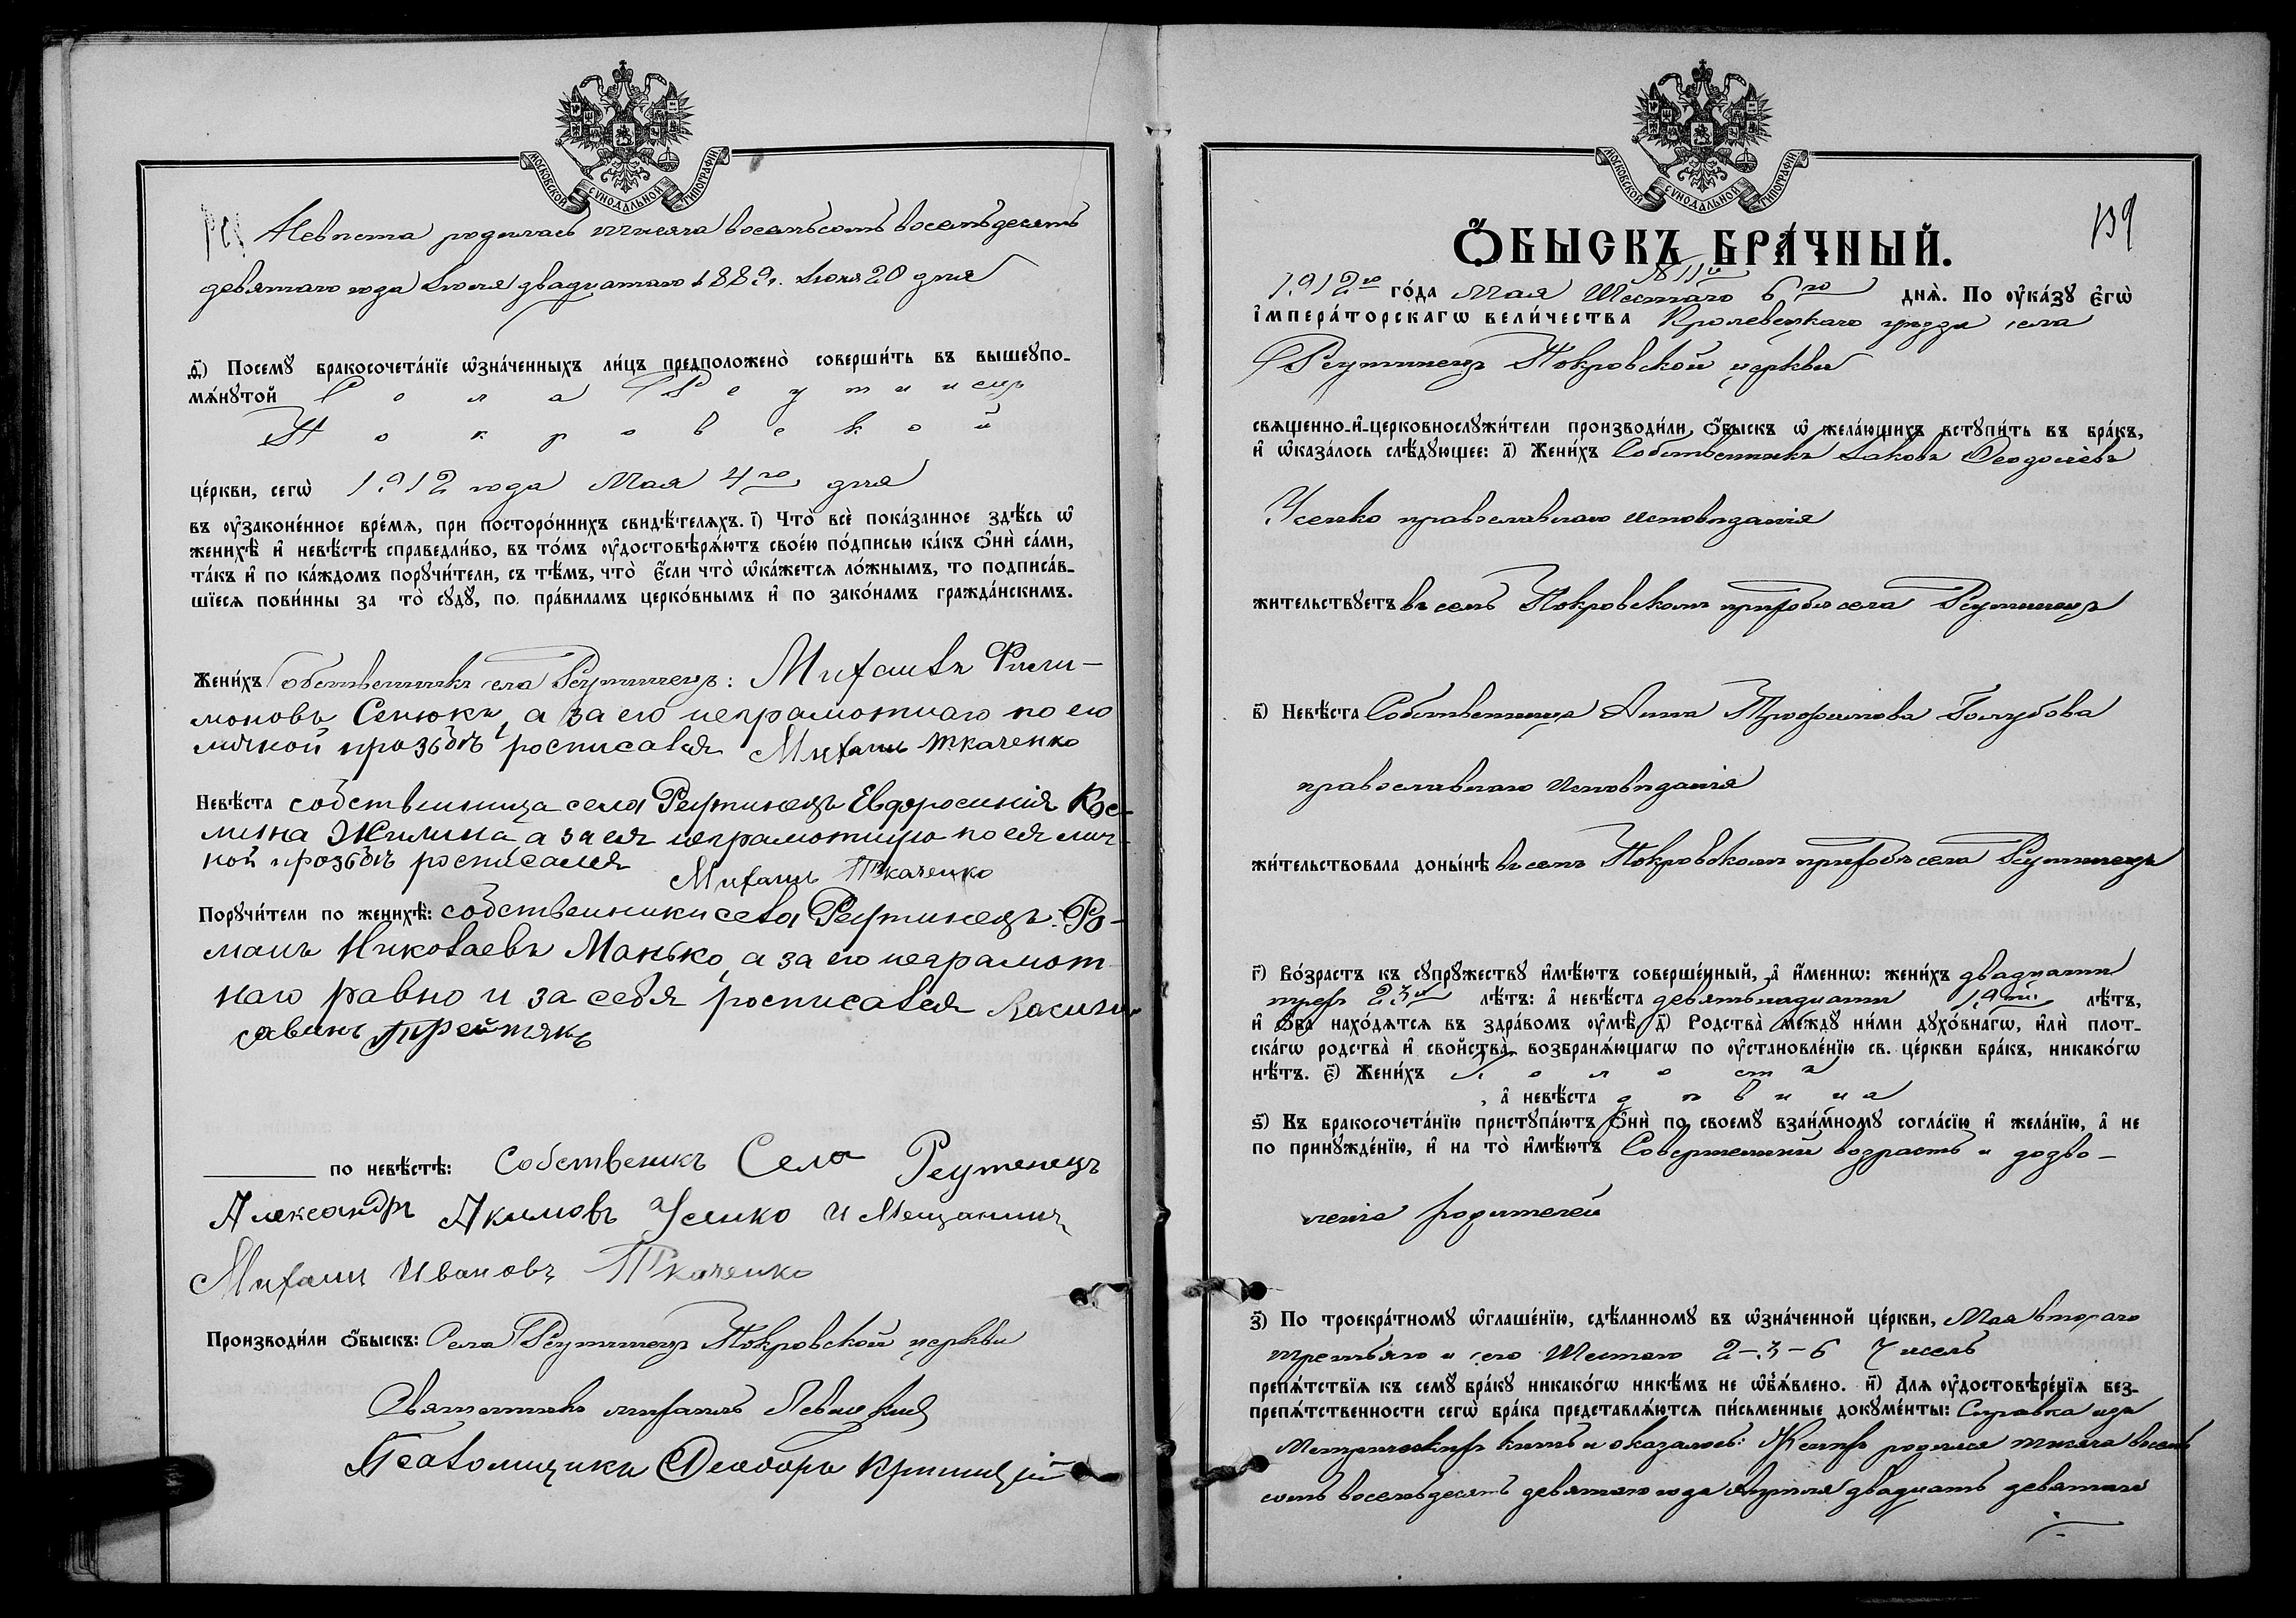 МОСКОВСКОЙ СУНОДАЛЬНОЙ ТИПОГРАФІИ
Невѣста родилась тысяча восемьсотъ восемьдесятъ
девятаго года Іюля двадцатаго 1889г. Іюля 20 дня
д҃) Посемꙋ бракосочета́нїе ѡ҆зна́ченныхъ ли́цъ предположено̀ соверши́ть въ вышеꙋпо-
мѧ́нꙋтой Села Реутинецъ
Покровской
це́ркви, сегѡ̀ 1912 года Мая 4го дня
въ ᲂу҆законе́нное вре́мѧ, при посторо́ннихъ свидѣ́телѧхъ. і҃) Что̀ всѐ пока́занное здѣ́сь ѡ҆
женихѣ̀ и҆ невѣ́стѣ справедли́во, въ то́мъ ᲂу҆достовѣрѧ́ютъ свое́ю по́дписью ка́къ ѻ҆нѝ са́ми,
та́къ и҆ по ка́ждомъ порꙋчи́тели, съ тѣ́мъ, что̀ є҆́сли что̀ ѡ҆ка́жетсѧ ло́жнымъ, то подписа́в-
шїесѧ пови́нны за то̀ сꙋдꙋ̀, по пра́виламъ церко́внымъ и҆ по зако́намъ гражда́нскимъ.
Жени́хъ Собственникъ села Реутинецъ: Михаилъ Фили-
моновъ Сенюкъ, а за его неграмотнаго по его
личной прозьбѣ росписался Михаилъ Ткаченко
Невѣ́ста собственница села Реутинецъ Евфросинія Кос-
мина Жилина а за ея неграмотную по ея лич-
ной прозьбѣ росписался Михаилъ Ткаченко
Порꙋчи́тели по женихѣ̀: собственники села Реутинецъ: Ро-
манъ Николаевъ Манько, а за его неграмот
наго равно и за себя росписался Василій
савинъ Третякъ
по невѣ́стѣ: Собственикъ Села Реутенецъ
Александръ Акимовъ Усенко и Мещанинъ
Михаил Ивановъ Ткаченко
Производи́ли ѻ҆́быскъ: Села Реутинецъ Покровской церкви
Священникъ Михаилъ Левицкій
Псаломщикъ Ѳеодоръ
МОСКОВСКОЙ СУНОДАЛЬНОЙ ТИПОГРАФІИ
139
Ѻ҆́БЫСКЪ БРА́ЧНЫЙ.
№ 11й
1912го го́да Мая Шестаго 6го днѧ̀. По ᲂу҆ка́зꙋ є҆гѡ̀
і҆мпера́торскагѡ вели́чества Кролевецкаго уѣзда села
Реутинецъ Покровской церкви
свѧщенно-и҆-церковнослꙋжи́тели производи́ли ѻ҆́быскъ ѡ҆ жела́ющихъ встꙋпи́ть въ бра́къ,
и҆ ѡ҆каза́лось слѣ́дꙋющее: а҃) Жени́хъ Собственникъ Іаковъ Ѳеодосіевъ
Усенко православнаго исповѣданія
жительствꙋетъ въ семъ Покровскомъ приходѣ села Реутинецъ
в҃) Невѣ́ста Собственница Анна Трофимова Голубова
православнаго исповѣданія
жи́тельствовала доны́нѣ въ семъ Покровскомъ приходѣ села Реутинецъ
г҃) Во́зрастъ къ сꙋпрꙋжествꙋ и҆мѣ́ютъ соверше́нный, а҆ и҆́меннѡ: жени́хъ двадцати
трехъ 23й лѣ́тъ: а҆ невѣ́ста девятьнадцати 19ти лѣ́тъ,
и҆ ѻ҆́ба нахо́дѧтсѧ въ здра́вомъ ᲂу҆мѣ̀ д҃) Родства̀ междꙋ̀ ни́ми дꙋхо́внагѡ, и҆лѝ плот-
ска́гѡ родства̀ и҆ свойства̀ возбранѧ́ющагѡ по ᲂу҆становле́нїю св. це́ркви бра́къ, никако́гѡ
нѣ́тъ. є҃) Жени́хъ Холостъ
, а҆ невѣ́ста дѣвица
ѕ҃) Къ бракосочета́нїю пристꙋпа́ютъ ѻ҆нѝ по своемꙋ̀ взаи́мномꙋ согла́сїю и҆ жела́нїю, а҆ не
по принꙋжде́нїю, и҆ на то̀ и҆мѣ́ютъ Совершенний возрастъ и дозво-
ленія родителей
з҃) По троекра́тномꙋ ѡ҆глаше́нїю, сдѣ́ланномꙋ въ ѡ҆зна́ченной це́ркви, Мая втораго
третьяго и сего Шестаго 2-3-6 Чиселъ
препѧ́тствїѧ къ семꙋ̀ бра́кꙋ никако́гѡ никѣ́мъ не ѡ҆б̾ѧ́влено. и҃) Длѧ ᲂу҆достовѣре́нїѧ без-
препѧ́тственности сегѡ̀ бра́ка представлѧ́ютсѧ пи́сьменные докꙋме́нты: Справка изъ
Метрическихъ книгъ и оказалось: Женихъ родился тысяча восемь
сотъ восемьдесятъ девятаго года Апреля двадцать девятаго